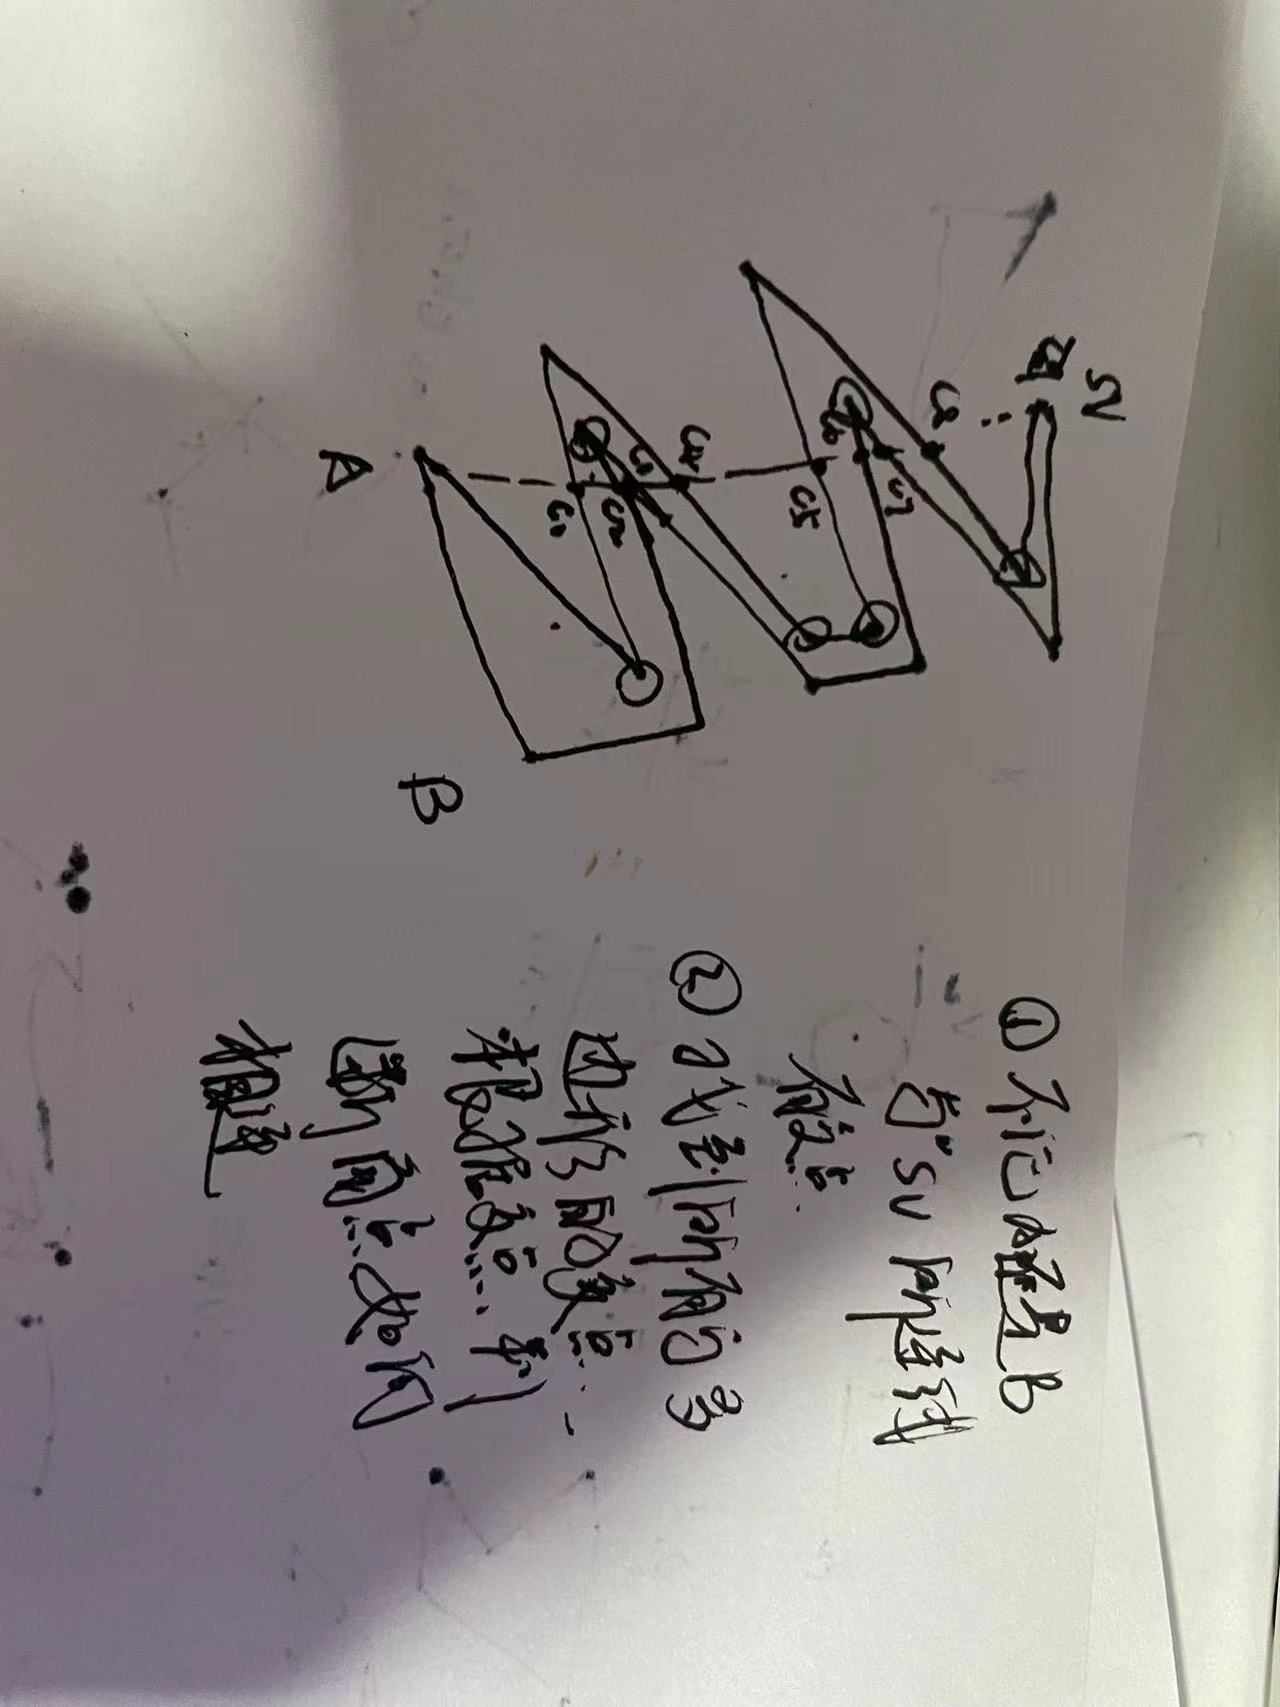 SV
C8
C7
C6
C5
C4
C3
C2
C1
B
A
① 不论A还是B
与SV所连线
有交点
② 找到所有与多
边形的交点
根据交点判
断角点如何
相连